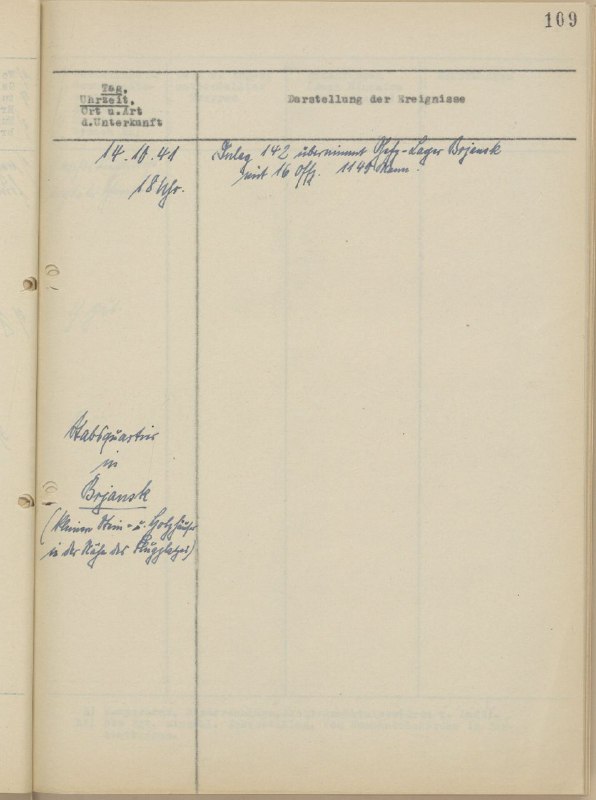 109
Tag,
Uhrzeit,
Ort u.Art
d.Unterkunft
Darstellung der Ereignisse
14.10.41
18 Uhr.
Dulag 142 übernimmt Gefg-Lager Brjansk
mit 16 Offz. 1140 Mann.
Stabsquartier
in
Brjansk
(kleine Stein- u. Holzhäuser
in der Nähe des Flugplatzes)